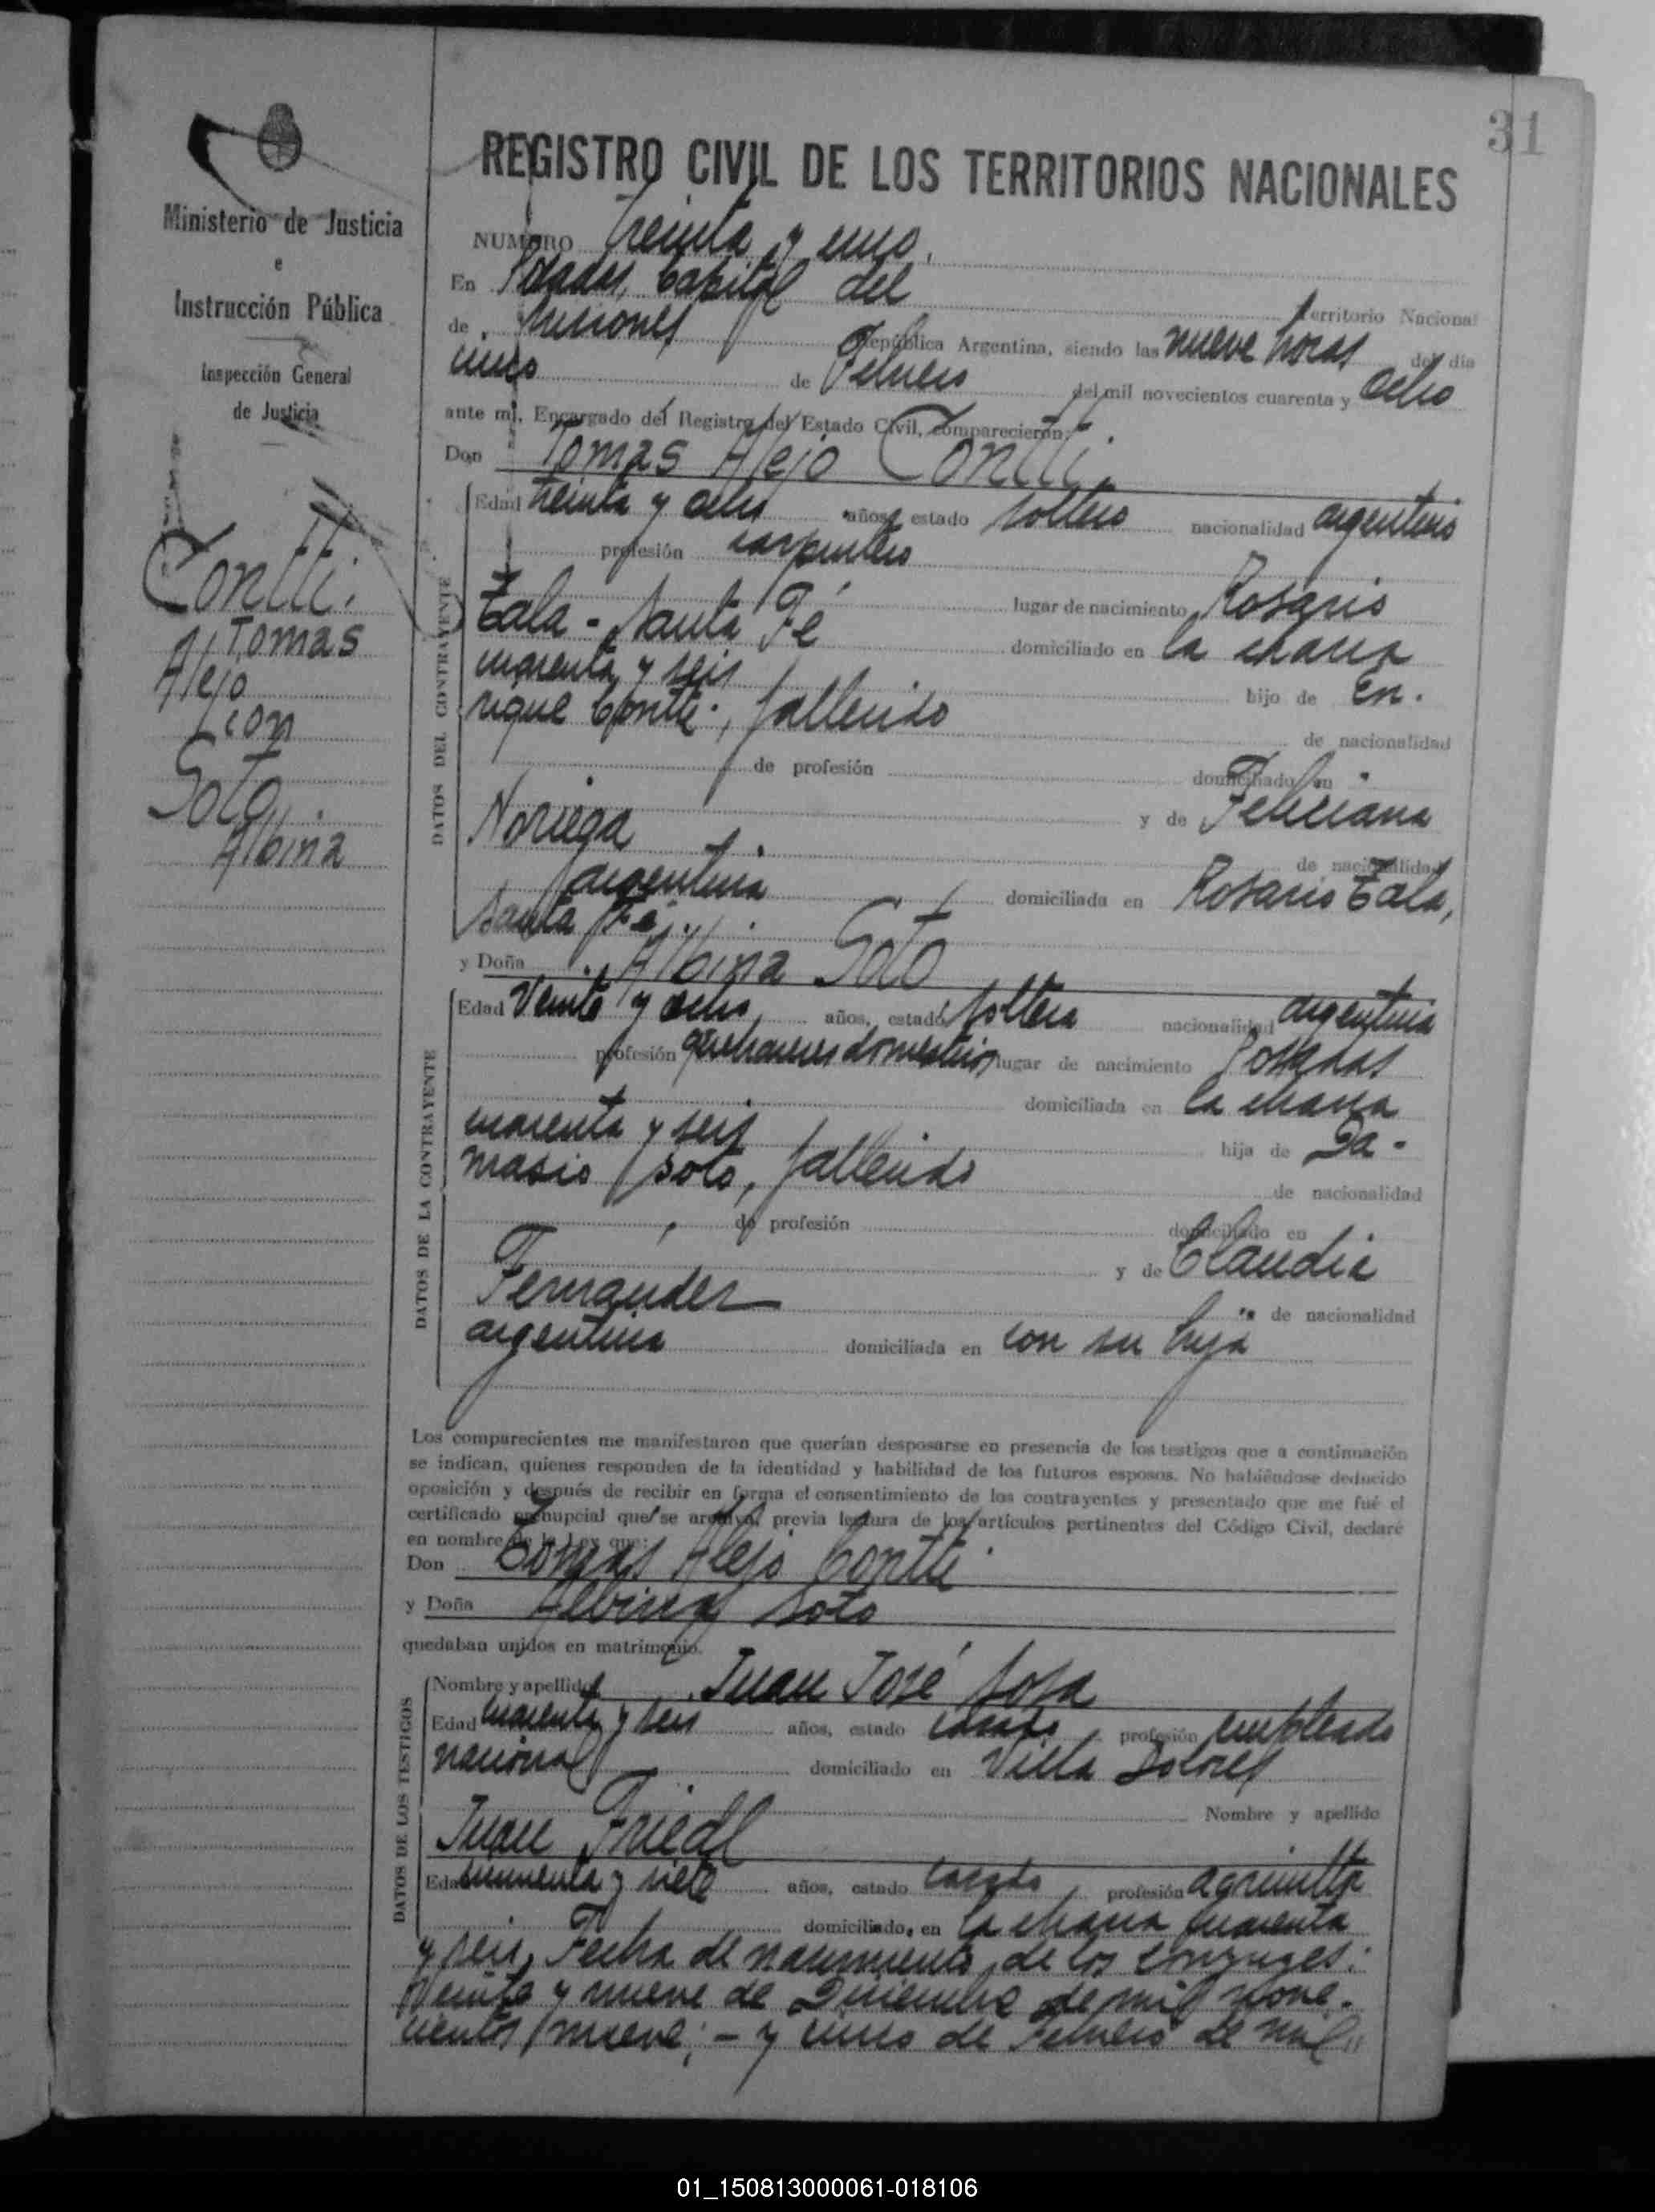 31
REGISTRO CIVIL DE LOS TERRITORIOS NACIONALES
Ministerio de Justicia
e
Instrucción Pública
Inspección General
de Justicia
Contti.
Tomas
Alejo
con
Soto
Albina
NUMERO Treinta y uno.
En Posadas, Capital del Territorio Nacional
de Misiones República Argentina, siendo las nueve horas del día
cinco de Febrero del mil novecientos cuarenta y ocho
ante mí, Encargado del Registro del Estado Civil, comparecieron:
Don Tomas Alejo Contti.
DATOS DEL CONTRAYENTE
Edad treinta y ocho años, estado soltero nacionalidad argentino
profesión carpintero
lugar de nacimiento Rosario
Tala - Santa Fé domiciliado en la chacra
cuarenta y seis hijo de En-
rique Contti, fallecido de nacionalidad
de profesión domiciliado en
y de Feliciana
Noriega de nacionalidad
argentina domiciliada en Rosario Tala,
Santa Fe
y Doña Albina Soto
DATOS DE LA CONTRAYENTE
Edad Veinte y ocho años, estado soltera nacionalidad argentina
profesión quehaceres domesticos lugar de nacimiento Posadas
domiciliada en la chacra
cuarenta y seis hija de Da-
masio Soto, fallecido de nacionalidad
de profesión domiciliado en
y de Claudia
Fernandez de nacionalidad
argentina domiciliada en con su hija
Los comparecientes me manifestaron que querían desposarse en presencia de los testigos que a continuación
se indican, quienes responden de la identidad y habilidad de los futuros esposos. No habiéndose deducido
oposición y después de recibir en forma el consentimiento de los contrayentes y presentado que me fué el
certificado prenupcial que se archiva, previa lectura de los artículos pertinentes del Código Civil, declaré
en nombre de la Ley que:
Don Tomas Alejo Contti
y Doña Albina Soto
quedaban unidos en matrimonio.
DATOS DE LOS TESTIGOS
Nombre y apellido Juan José Sosa
Edad cuarenta y seis años, estado casado profesión empleado
nacional domiciliado en Villa Dolores
Nombre y apellido
Juan Friedl
Edad cincuenta y siete años, estado casado, profesión agricultor
domiciliado en la chacra cuarenta
y seis, Fecha de nacimiento de los conyuges:
Veinte y nueve de Diciembre de mil nove-
cientos nueve; - y cinco de Febrero de mil
01_150813000061-018106